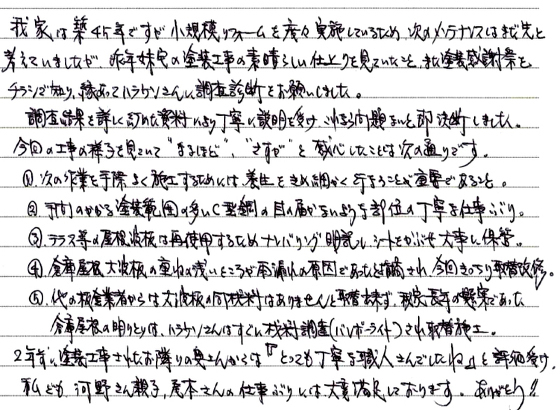 我家は築45年ですが小規模リフォームを度々実施しているため、次のメンテナンスはまだ先と
考えていましたが、昨年妹宅の塗装工事の素晴らしい仕上りを見ていたこと、また塗装感謝祭を
チラシで知り、縁あってハラケンさんに調査診断をお願いしました。
調査結果を詳しく記した資料により丁寧に説明を受け、これなら問題ないと即決断しました。
今回の工事の様子を見ていて"なるほど"、"さすが"と感心したことは次の通りです。
①次の作業を手際よく施工するためには、養生をきめ細かく行なうことが重要であること。
②手間のかかる塗装範囲の多いC型鋼の目の届かないような部位の丁寧な仕事ぶり。
③テラス等の屋根波板は再使用するためナンバリング明記し、シートをかぶせ大事に保管。
④倉庫屋根大波板の重ねの浅いところが雨漏れの原因であったと指摘され、今回きっちり取替改修。
⑤他の板金業者からは大波板の同材料はありませんと取替出来ず、我家長年の懸案であった
倉庫屋根の明りとりは、ハラケンさんはすぐに材料調査(ハイボーライト)され取替施工。
2年前に塗装工事されたお隣りの奥さんからは『とっても丁寧な職人さんでしたね』と評価受け、
私ども、河野さん親子、尾本さんの仕事ぶりには大変満足しております。ありがとう!!